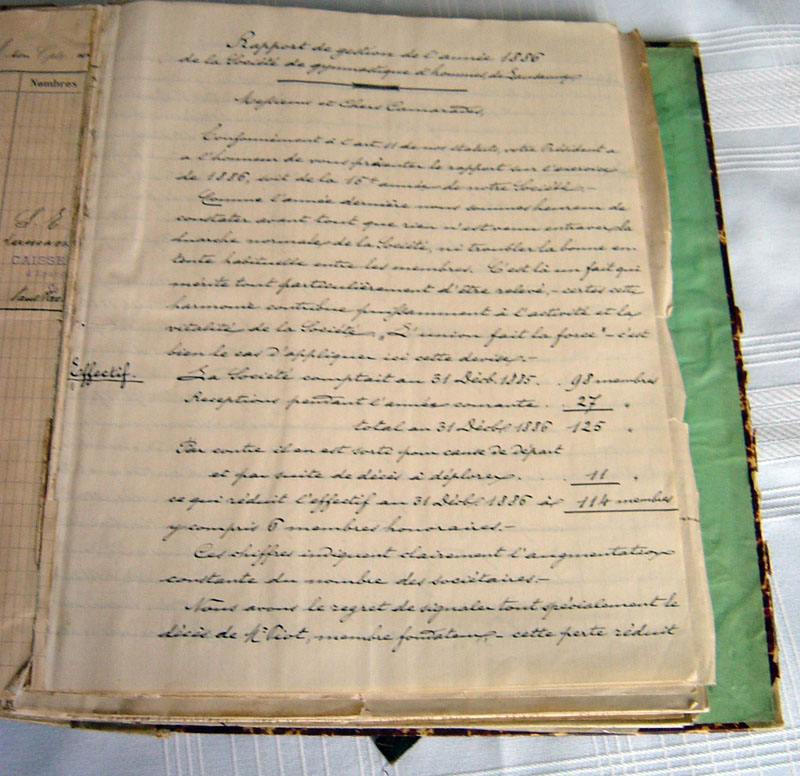 Nombres
CAISSE
Rapport de gestion de l'année 1886
de la Société de gymnastique d'hommes de Lausanne
Messieurs et Chers Camarades,
Conformément à l'art. 11 de nos statuts, votre Président a
a l'honneur de vous présenter le rapport sur l'exercice
de 1886, soit de la 15e année de notre Société.-
Comme l'année dernière nous sommes heureux de
constater avant tout que rien n'est venu entraver la
marche normale de la Société, ni troubler la bonne en
tente habituelle entre les membres. C'est là un fait qui
mérite tout particulièrement d'être relevé, - certes cette
harmonie contribue puissamment à l'activité et la
vitalité de la Société „L'union fait la force" - c'est
bien le cas d'appliquer ici cette devise.-
Effectif.
La Société comptait au 31 Décb. 1885. . 98 membres
Réceptions pendant l'année courante . 27 "
total au 31 Décbr 1886 125 "
Par contre il en est sorti pour cause de départ
et par suite de décès à déplorer . . . . 11 "
ce qui réduit l'effectif au 31 Décbr 1886 à 114 membres
y compris 6 membres honoraires.-
Ces chiffres indiquent clairement l'augmentation
constante du nombre des sociétaires.-
Nous avons le regret de signaler tout spécialement le
décès de Mr Piot, membre fondateur, - cette perte réduit